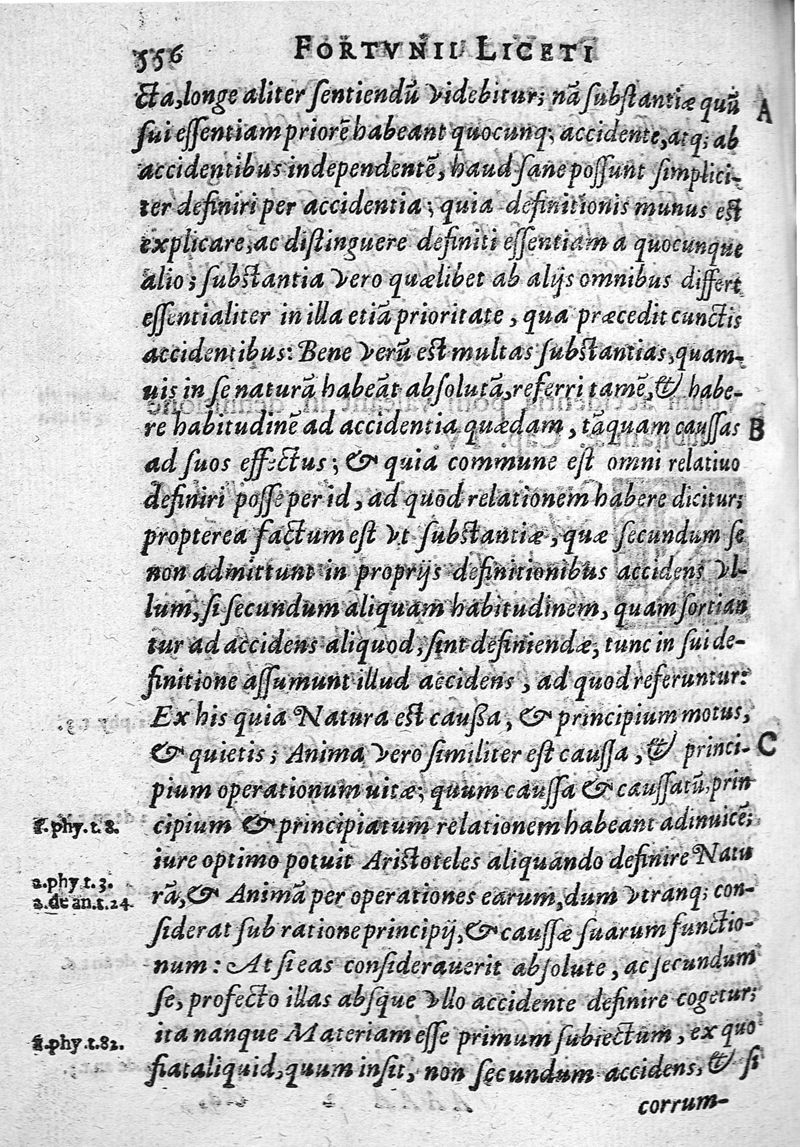 556
FORTVNII LICETI
cta, longe aliter sentiendū videbitur; nā substantiæ quū
A
sui essentiam priorē habeant quocunq; accidente, atq; ab
accidentibus independentē, haud sane possunt simplici-
ter definiri per accidentia; quia definitionis munus est
explicare, ac distinguere definiti essentiam a quocunque
alio; substantia vero quælibet ab alijs omnibus differt
essentialiter in illa etiā prioritate, qua præcedit cunctis
accidentibus: Bene verū est multas substantias, quam-
uis in se naturā habeāt absolutā, referri tamē, & habe-
re habitudinē ad accidentia quædam, tāquam caussas
B
ad suos effectus; & quia commune est omni relatiuo
definiri posse per id, ad quod relationem habere dicitur;
propterea factum est vt substantiæ, quæ secundum se
non admittunt in proprijs definitionibus accidens vl-
lum, si secundum aliquam habitudinem, quam sortian
tur ad accidens aliquod, sint definiendæ, tunc in sui de-
finitione assumunt illud accidens, ad quod referuntur:
Ex his quia Natura est caußa, & principium motus,
& quietis; Anima vero similiter est caussa, & princi-
C
pium operationum uitæ; quum caussa & caussatū, prin
cipium & principiatum relationem habeant adinuicē;
2.phy.t.8.
iure optimo potuit Aristoteles aliquando definire Natu
2.phy t.3.
rā, & Animā per operationes earum, dum vtranq; con-
2.de an.t.24.
siderat sub ratione principij, & caussæ suarum functio-
num: At si eas considerauerit absolute, ac secundum
se, profecto illas absque vllo accidente definire cogetur;
ita nanque Materiam esse primum subiectum, ex quo
1.phy.t.82.
fiat aliquid, quum insit, non secundum accidens, & si
corrum-